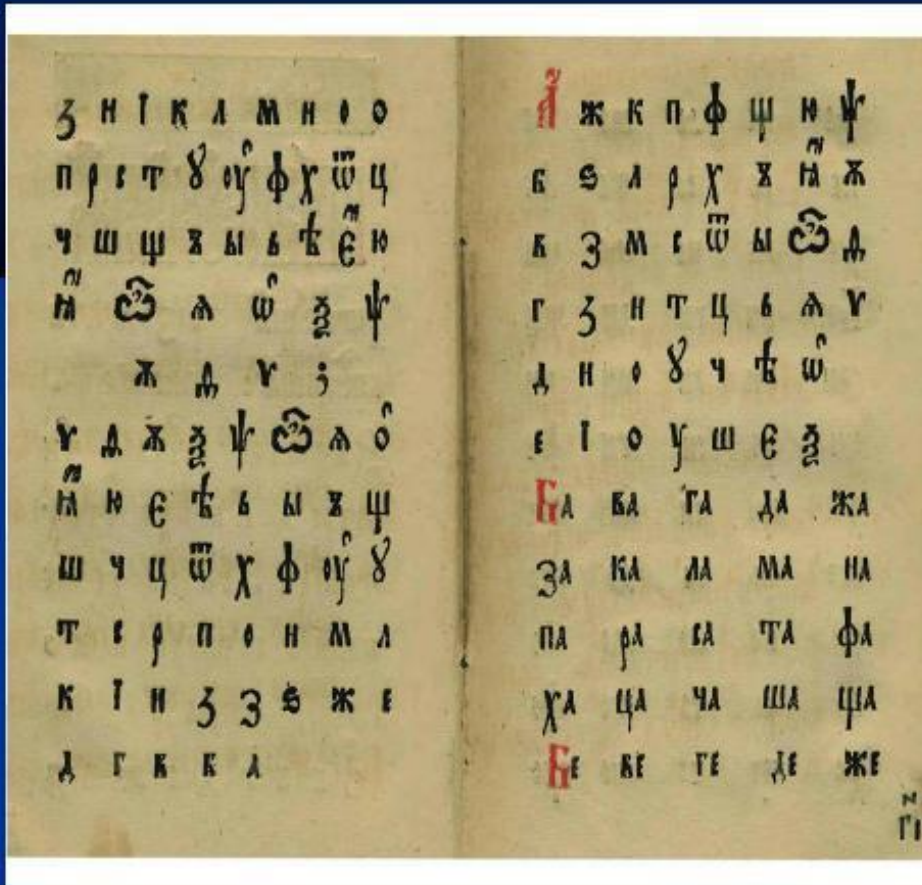 ꙁ н ї к л м н о о
п р с т ꙋ оу ф х ѿ ц
ч ш щ ъ ы ь ѣ є҆ ю
ꙗ҆ ѽ ѧ ѡ҆ ѯ ѱ
ѫ д ѵ ;
ѵ д ѫ ѯ ѱ ѽ ѧ о҆
ꙗ҆ ю є ѣ ь ы ъ щ
ш ч ц ѿ х ф оу ꙋ
т с р п о н м л
к ї н ꙁ з ѕ ж е
д г в б а
А҆ ж к п ф щ ю ѱ
б ѕ л р х ъ ꙗ҆ ѫ
в з м с ѿ ы ѽ д
г ꙁ н т ц ь ѧ ѵ
д н о ꙋ ч ѣ ѡ҆
е ї о у ш є ѯ
Ба ва га да жа
за ка ла ма на
па ра са та фа
ха ца ча ша ща
Бе ве ге де же